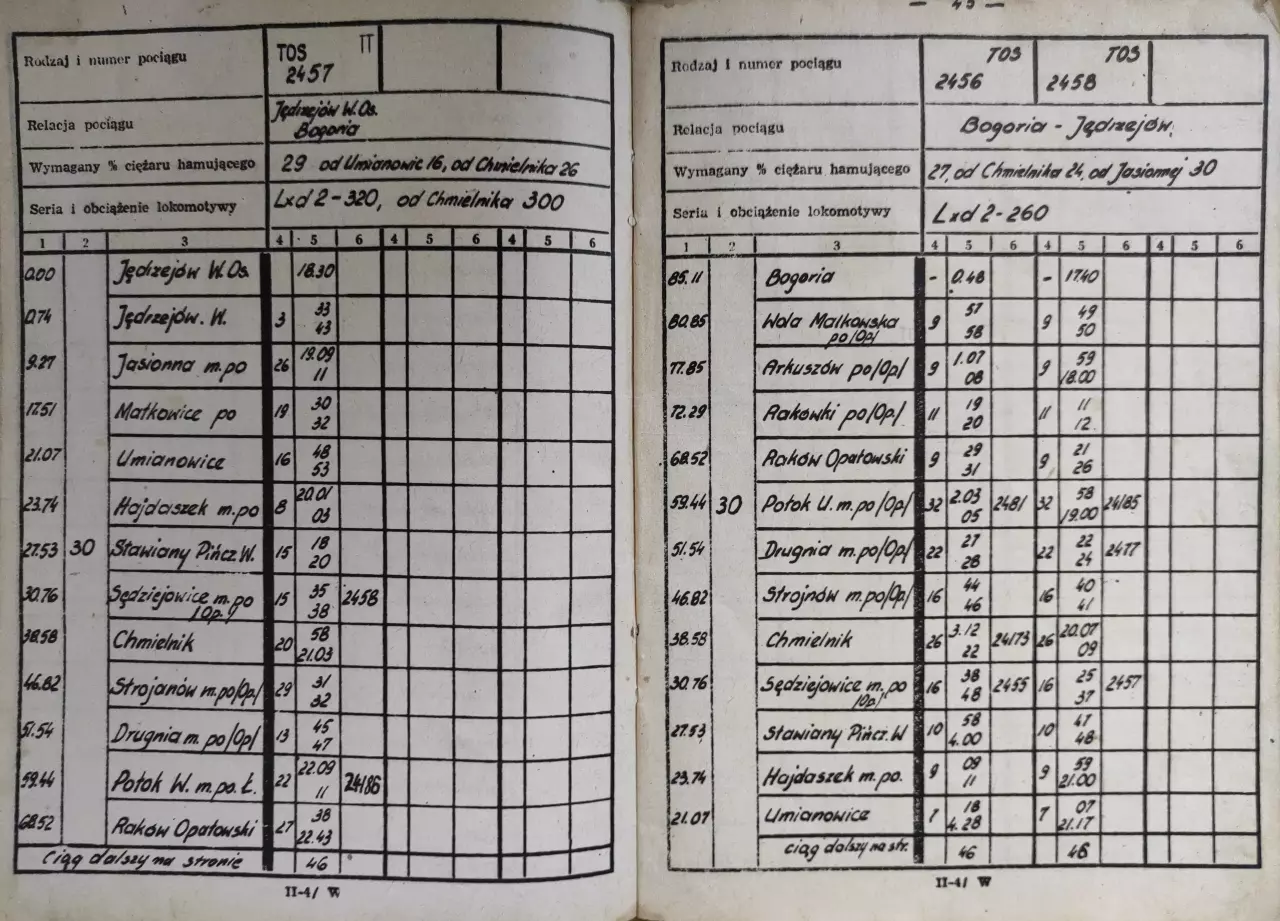 Rodzaj i numer pociągu TOS TT
2457
Relacja pociągu Jędrzejów W.Os.
Bogoria
Wymagany % ciężaru hamującego 29 od Umianowic 16, od Chmielnika 26
Seria i obciążenie lokomotywy Lxd2-320, od Chmielnika 300
1 2 3 4 5 6 4 5 6 4 5 6
0.00 Jędrzejów W.Os. 18.30
0.74 Jędrzejów. W. 3 33
43
9.27 Jasionna m.po 26 19.09
11
17.51 Motkowice po 19 30
32
21.07 Umianowice 16 48
53
23.74 Hajdaszek m.po 8 20.01
03
27.53 30 Stawiany Pińcz.W. 15 18
20
30.76 Sędziejowice m.po 15 35 2458
/Op./ 38
38.58 Chmielnik 20 58
21.03
46.82 Strojanów m.po/Op./ 29 31
32
51.54 Drugnia m. po/Op/ 13 45
47
59.44 Potok W. m.po. Ł. 22 22.09 24186
11
68.52 Raków Opatowski 27 38
22.43
Ciąg dalszy na stronie 46
II-4/ W
45
Rodzaj i numer pociągu TOS TOS
2456 2458
Relacja pociągu Bogoria - Jędrzejów
Wymagany % ciężaru hamującego 27, od Chmielnika 24, od Jasionnej 30
Seria i obciążenie lokomotywy Lxd2-260
1 2 3 4 5 6 4 5 6 4 5 6
85.11 Bogoria - 0.48 - 17.40
80.85 Wola Malkowska 9 57 9 49
po/Op/ 58 50
77.85 Arkuszów po/Op/ 9 1.07 9 59
08 18.00
72.29 Rakówki po/Op./ 11 19 11 11
20 12
68.52 Raków Opatowski 9 29 9 21
31 26
59.44 30 Potok U. m.po/Op/ 32 2.03 2481 32 58 24185
05 19.00
51.54 Drugnia m.po/Op/ 22 27 22 22 2477
28 24
46.82 Strojnów m.po/Op/ 16 44 16 40
46 41
38.58 Chmielnik 26 3.12 24173 26 20.07
22 09
30.76 Sędziejowice m. po 16 38 2455 16 25 2457
/Op/ 48 37
27.53 Stawiany Pińcz.W 10 58 10 47
4.00 48
23.74 Hajdaszek m.po. 9 09 9 59
11 21.00
21.07 Umianowice 7 18 7 07
4.28 21.17
ciąg dalszy na str. 46 46
II-4/ W